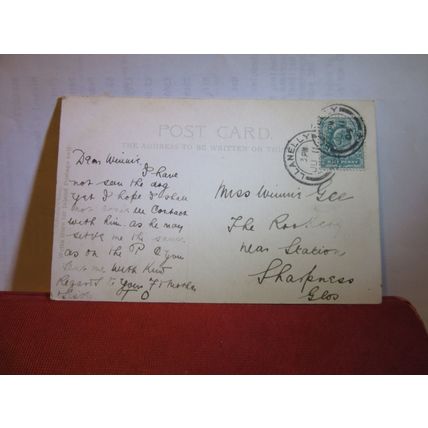 POST CARD.
THE ADDRESS TO BE WRITTEN ON THIS
LLANELLY
Dear Winnie,
I have
not seen the dog
yet I hope I shall
not come in Contact
with him. as he may
serve me the same
as on the P C you
me with Kind
Regards to you F & Mother
Miss Winnie Gee
The Rookery
near Station
Sharpness
Glos